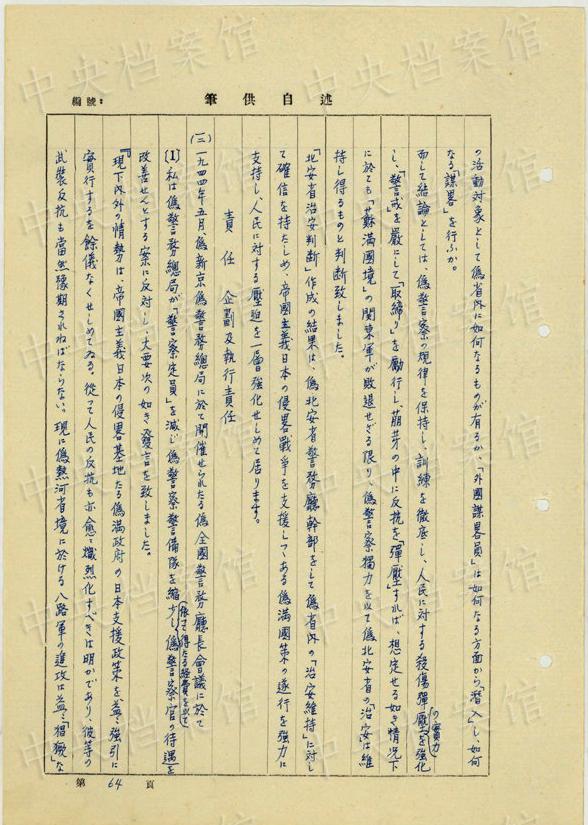 編號：
述自供筆
の活動対象として偽省内に如何なるものが有るか、「外國謀畧員」は如何なる方面から「潜入」し、如何
なる「謀畧」を行ふか。
而して結論としては、偽警察の規律を保持し、訓練を徹底し、人民に対する殺傷彈壓の実力を強化
し、「警戒」を厳にして「取締り」を励行し、萠芽の中に反抗を「彈壓」すれば、想定せる如き情況下
に於ても「蘇満國境」の関東軍が敗退せざる限り、偽警察獨力を以て偽北安省の「治安」は維
持し得るものと判断致しました。
「北安省治安判断」作成の結果は、偽北安省警務廳幹部をして偽省内の「治安維持」に対し
て確信を持たしめ、帝國主義日本の侵畧戦争を支援しつゝある偽満國策の遂行を強力に
支持し、人民に対する壓迫を一層強化せしめて居ります。
責任 企劃及執行責任
(三) 一九四四年五月、偽新京偽警務總局に於て開催せられたる偽全國警務廳長会議に於て
(1) 私は偽警務總局が「警察定員」を減じ偽警察警備隊を縮少し、依て得たる経費を以て偽警察官の待遇を
改善せんとする案に反対し、大要次の如き發言を致しました。
『現下内外の情勢は、帝國主義日本の侵畧基地たる偽満政府の日本支援政策を益々強引に
實行するを餘儀なくせしめてゐる。從つて人民の反抗も亦愈々熾烈化すべきは明かであり、彼等の
武裝反抗も当然豫期されねばならない。現に偽熱河省境に於ける八路軍の進攻は益々「猖獗」な
第 64 頁
中央档案馆